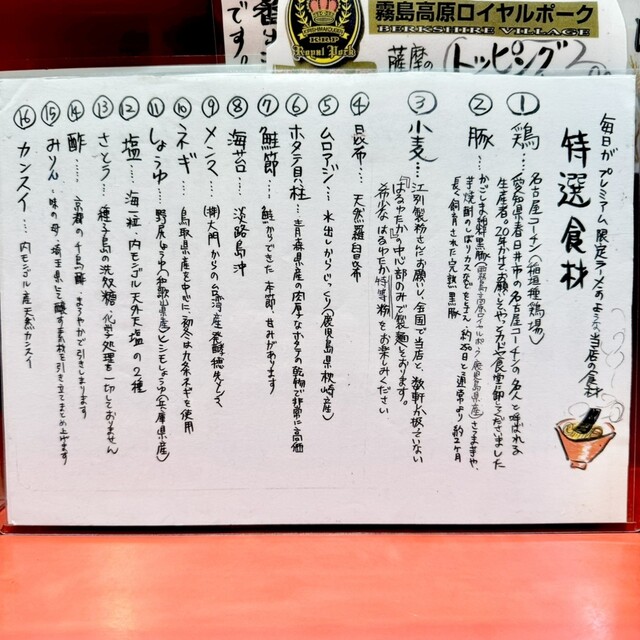 霧島高原ロイヤルポーク
BERKSHIRE VILLAGE
Royal Pork
薩摩の
トッピング
です。
毎日がプレミアム限定ラーメンのような当店の食材
特選食材
① 鶏… 名古屋コーチン(稲垣種鶏場)
愛知県春日井市の名古屋コーチンの名人と呼ばれる
生産者。20年かけてお願いしてやっとカドヤ食堂に卸してくださいました
② 豚… かごしま純粋黒豚(霧島高原ロイヤルポーク 鹿児島県産)さつま芋や、
芋焼酎のしぼりカスなどを与え、約250日と通常より約2ヶ月
長く飼育された完熟黒豚
③ 小麦… 江別製粉さんにお願いし、全国で当店と、数軒しか扱っていない
『はるゆたか』の中心部のみで製麺しております。
希少な はるゆたか特等粉をお楽しみください
④ 昆布… 天然羅臼昆布
⑤ ムロアジ… 水出しからじっくり(鹿児島県枕崎産)
⑥ ホタテ貝柱… 青森県産の肉厚なホタテの乾物で非常に高価
⑦ 鮭節… 鮭からできた本節、甘みがあります
⑧ 海苔… 淡路島沖
⑨ メンマ… (株)大門からの台湾産発酵穂先メンマ
⑩ ネギ… 鳥取県産を中心に、初冬は九条ネギを使用
⑪ しょうゆ… 野尻しょうゆ(和歌山県産)とシモしょうゆ(兵庫県産)
⑫ 塩… 海一粒・内モンゴル天外天塩の2種
⑬ さとう… 種子島の洗双糖・化学処理を一切しておりません
⑭ 酢…… 京都の千鳥酢・まろやかで引きしまります
⑮ みりん… 味の母・埼玉県にて醸す素材を引き立てまとめ上げます
⑯ カンスイ… 内モンゴル産天然カンスイ